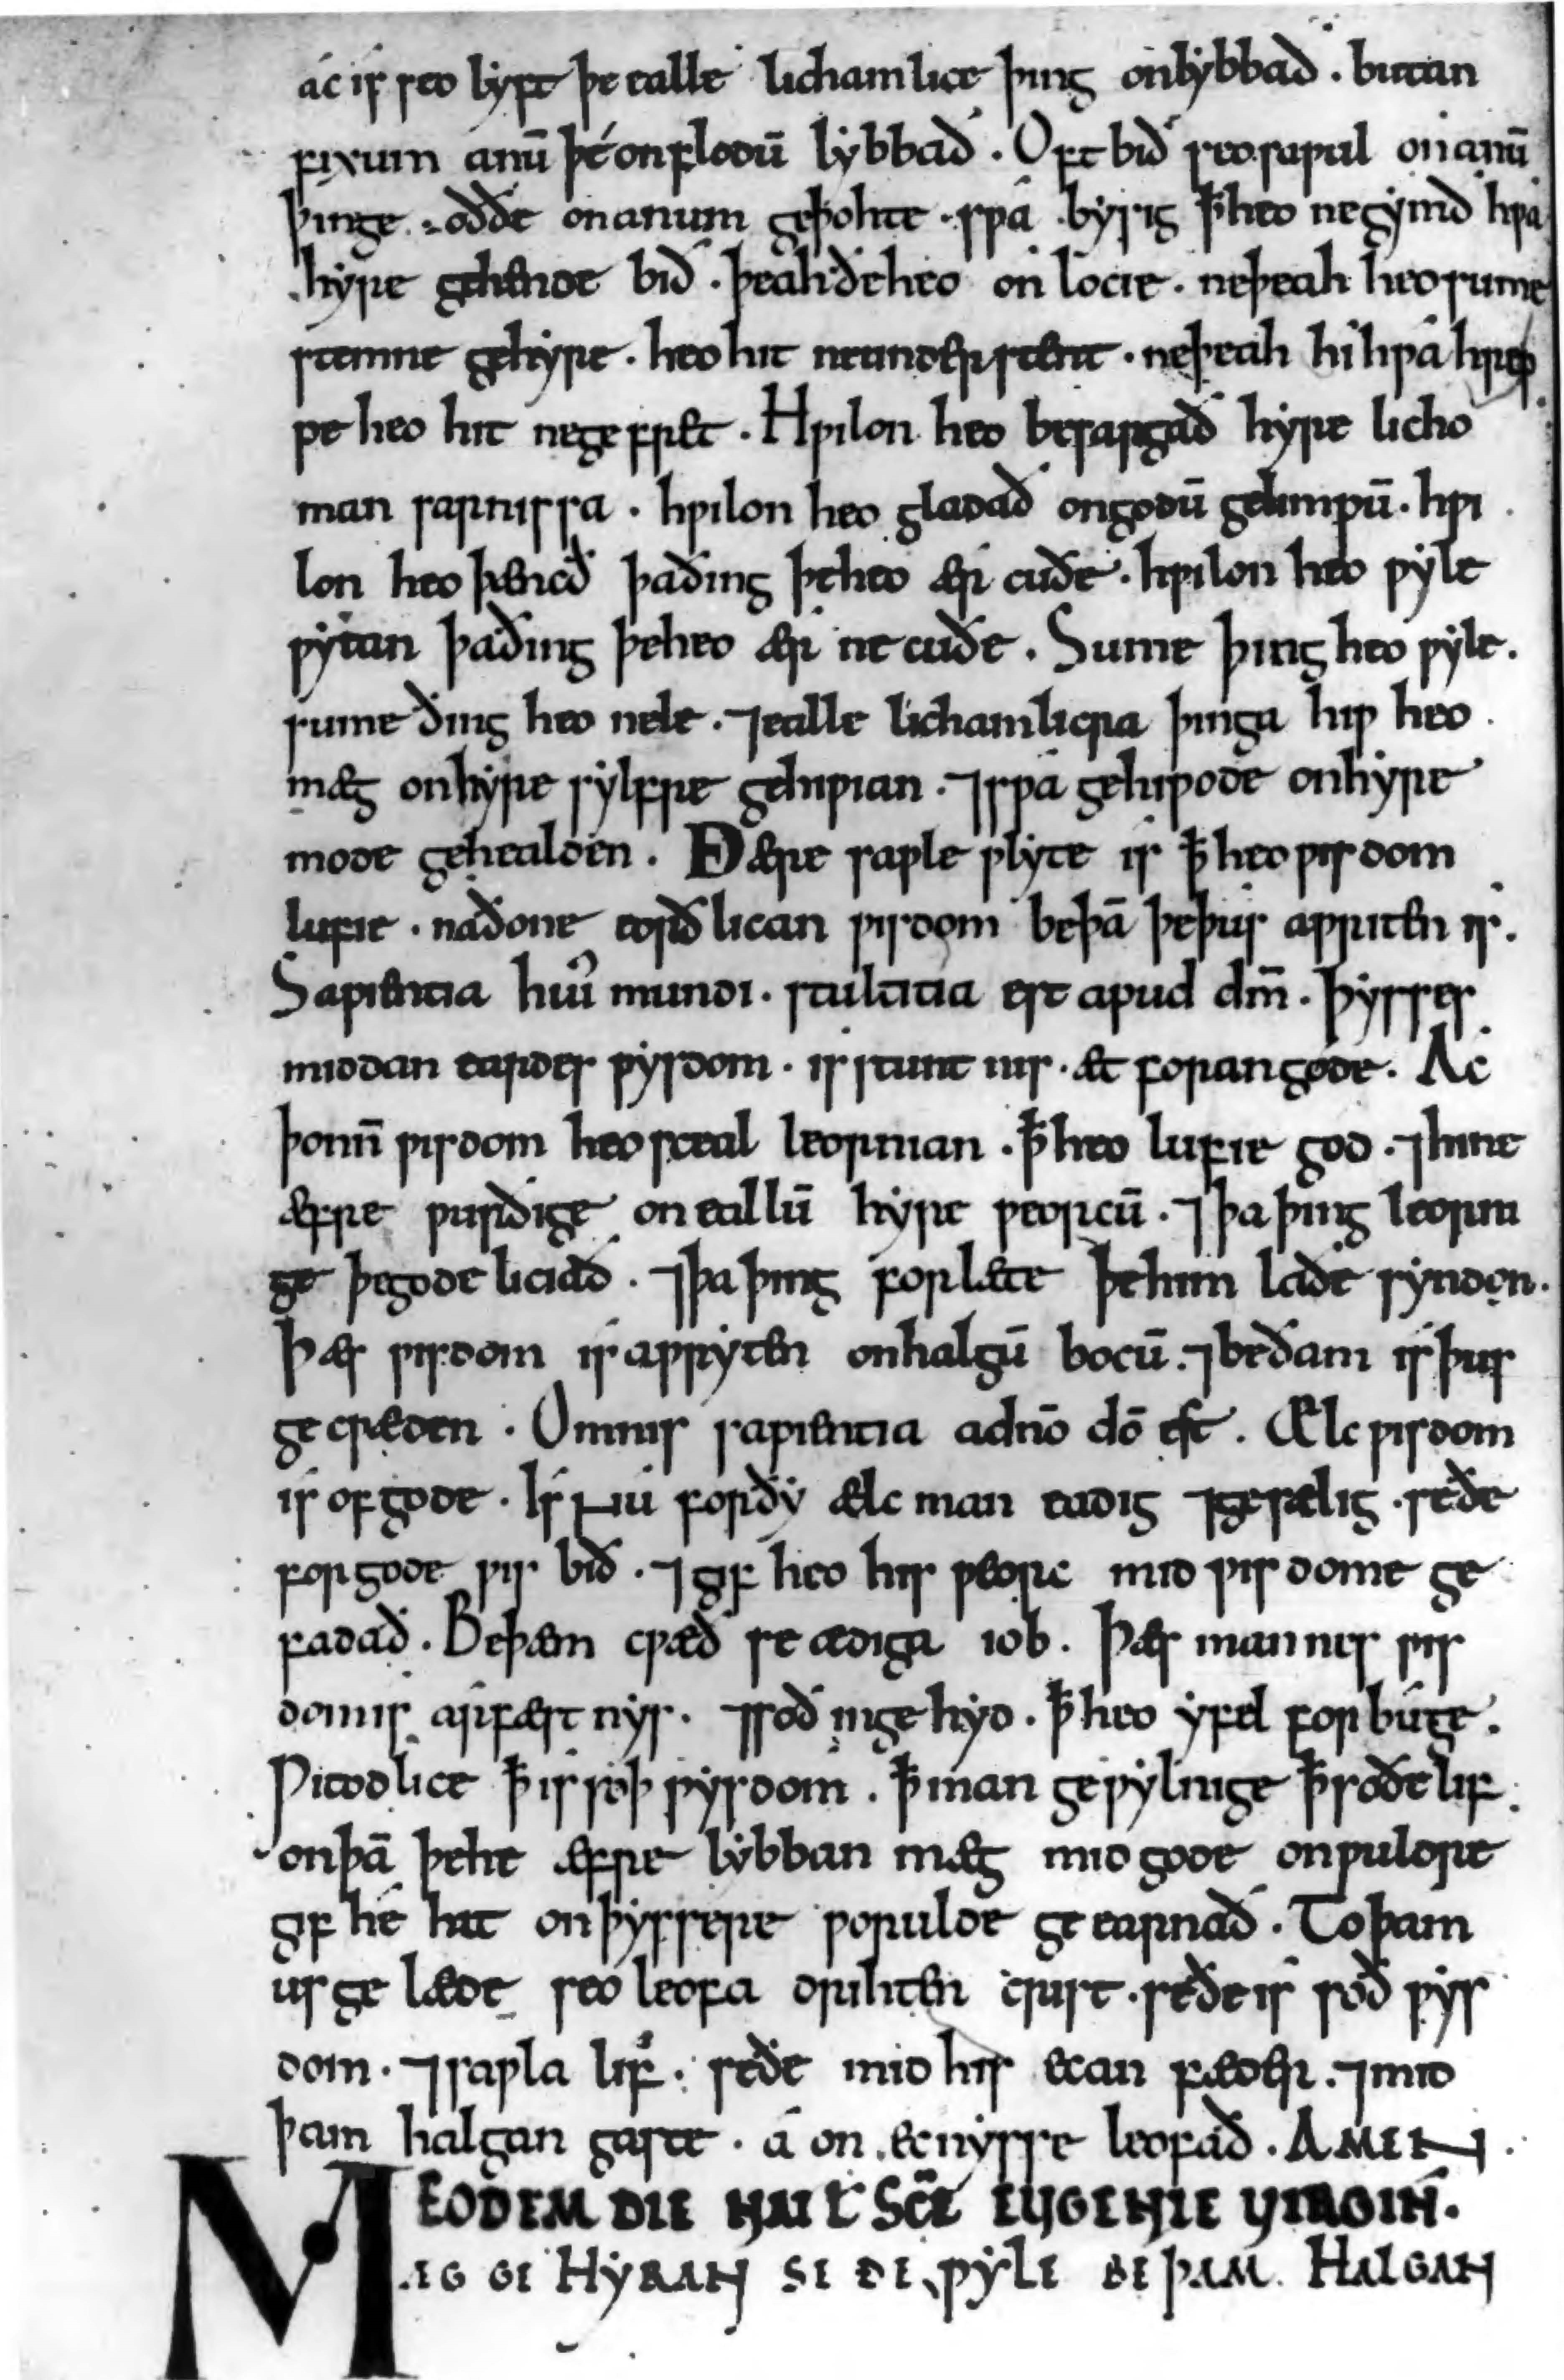 ác is seo lyft þe ealle lichamlice þing onlybbað . butan
fixum anū þe on flodū lybbað . Oft bið seo sawul on anū
þinge . oððe on anum geþohte . swa . bysig ꝥ heo ne gymð hwa
hyre gehende bið . þeah ðe heo on locie . ne þeah heo sume
stemne gehyre . heo hit ne understent . ne þeah hi hwa hrep
pe heo hit ne gefret . Hwilon heo besargað hyre licho
man sarnissa . hwilon heo gladað on godū gelimpū . hwi
lon heo þæncð þa ðing þe heo ær cuðe . hwilon heo wyle
wytan þa ðing þe heo ær ne cuðe . Sume þing heo wyle .
sume ðing heo nele . ⁊ ealle lichamlicra þinga hiw heo
mæg on hyre sylfre gehiwian . ⁊ swa gehiwode on hyre
mode gehealden . Ðære sawle wlyte is ꝥ heo wisdom
lufie . na ðone eorðlican wisdom be þā þe þus awriten is .
Sapientia huiꝰ mundi . stultitia est apud dm̄ . Þysses
middan eardes wysdom . is stunt nis . æt foran gode . Ac
þonn̄ wisdom heo sceal leornian . ꝥ heo lufie god . ⁊ hine
æfre wurðige on eallū hyre weorcū . ⁊ þa þing leorni
ge þe gode liciað . ⁊ þa þing forlæte þe him laðe syndon .
Þæs wisdom is awryten on halgū bocū . ⁊ be ðam is þus
gecwæden . Omnis sapientia a dn̄o dō est . Ælc wisdom
is of gode . Is nu forðy ælc man eadig ⁊ gesælig . se ðe
for gode wis bið . ⁊ gif heo his weorc mid wisdome ge
fadað . Be þæm cwæð se ædiga iob . Þæs mannes wis
domis arfæstnys . ⁊ soð ingehyd . ꝥ heo yfel forbuge .
Witodlice ꝥ is soþ wysdom . ꝥ man gewylnige ꝥ soðe lif
on þā þe he æfre lybban mæg mid gode on wuldre
gif hé hit on þyssere worulde geearnað . To þam
us gelæde seo leofa drihten crist . se ðe is soð wys
dom . ⁊ sawla lif . se ðe mid his ecan fæder . ⁊ mid
þam halgan gaste . á on ecnysse leofað . AMEN .
EODEM DIE NAT̄ SC̄E EUGENIE VIRGIN̄ .
MÆG GE HYRAN SE ÐE WYLE BE ÞAM HALGAN